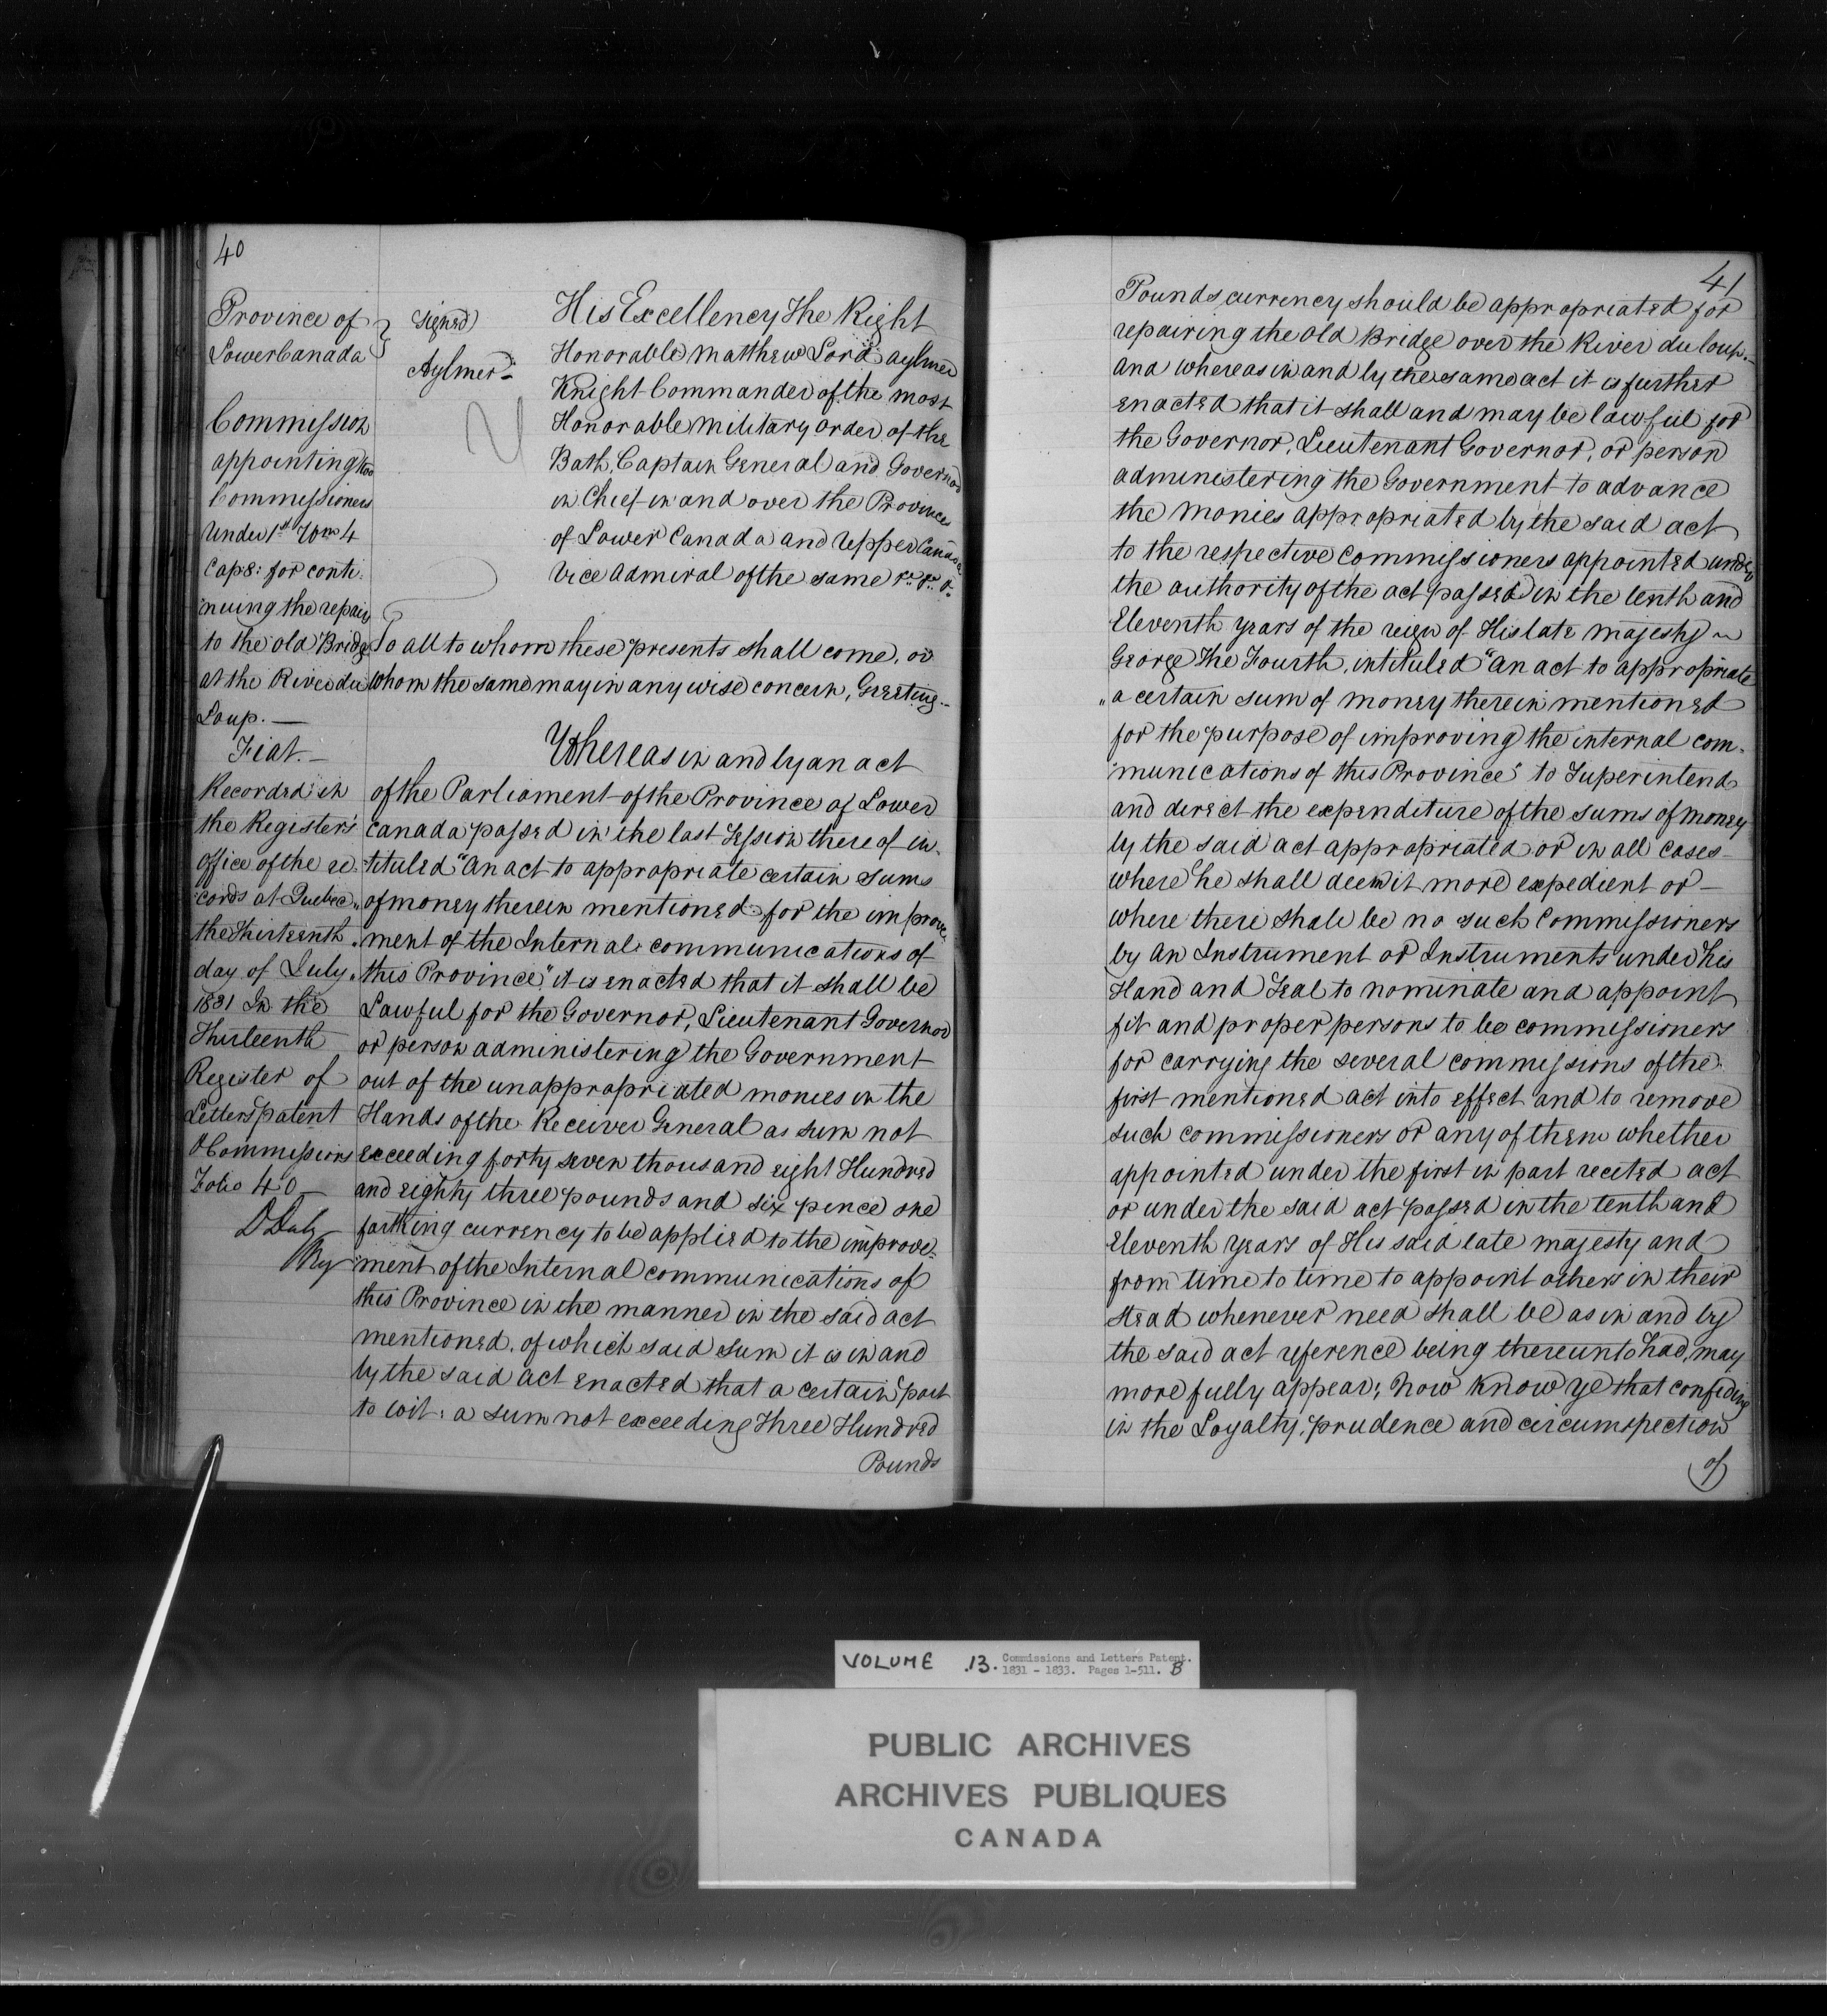 40
Province of
Lower Canada
Commission
appointing two
Commissioners
Under 1st Wm 4
Cap 8: for conti:
"nuing the repairs
to the old Bridge
at the River du
Loup. —
Fiat. —
Recorded in
the Register's
office of the re-
"cords at Quebec
the Thirteenth
day of July
1831 In the
Thirteenth
Register of
Letters patent
& Commissions
Folio 40 —
D Daly
Reg
signed)
Aylmer —
His Excellency The Right
Honorable Matthew Lord Aylmer
Knight Commander of the most
Honorable Military order of the
Bath, Captain General and Governor
in Chief in and over the Provinces
of Lower Canada and Upper Canada
Vice Admiral of the same &c. &c. &c.
To all to whom these presents shall come, or
whom the same may in any wise concern, Greeting —
Whereas in and by an act
of the Parliament of the Province of Lower
Canada passed in the last Session there of in-
"tituled "An act to appropriate certain sums
"of money therein mentioned for the improve-
"ment of the Internal communications of
"this Province," it is enacted that it shall be
Lawful for the Governor, Lieutenant Governor
or person administering the Government
out of the unappropriated monies in the
Hands of the Receiver General as sum not
exceeding forty seven thousand eight Hundred
and eighty three pounds and six pence one
farthing currency to be applied to the improve-
"ment of the Internal communications of
this Province in the manner in the said act
mentioned, of which said sum it is in and
by the said act enacted that a certain part
to wit: a sum not exceeding Three Hundred
Pounds
41
Pounds currency should be appropriated for
repairing the old Bridge over the River du Loup. —
And whereas in and by the same act it is further
enacted that it shall and may be lawful for
the Governor, Lieutenant Governor, or person
administering the Government to advance
the Monies appropriated by the said act
to the respective Commissioners appointed under
the authority of the act passed in the tenth and
Eleventh years of the reign of His late Majesty
George The Fourth, intituled "An act to appropriate
"a certain sum of money therein mentioned
for the purpose of improving the internal com-
"munications of this Province" to Superintend
and direct the expenditure of the sums of money
by the said act appropriated or in all cases —
where he shall deem it more expedient or —
where there shall be no such Commissioners
by an Instrument or Instruments under his
Hand and Seal to nominate and appoint
fit and proper persons to be commissioners
for carrying the several commissions of the
first mentioned act into effect and to remove
such commissioners or any of them whether
appointed under the first in part recited act
or under the said act passed in the tenth and
Eleventh years of His said late majesty and
from time to time to appoint others in their
stead whenever need shall be as in and by
the said act reference being thereunto had, may
more fully appear; Now Know ye that confiding
in the Loyalty, prudence and circumspection
of
VOLUME 13. Commissions and Letters Patent.
1831 - 1833. Pages 1-511. B
PUBLIC ARCHIVES
ARCHIVES PUBLIQUES
CANADA